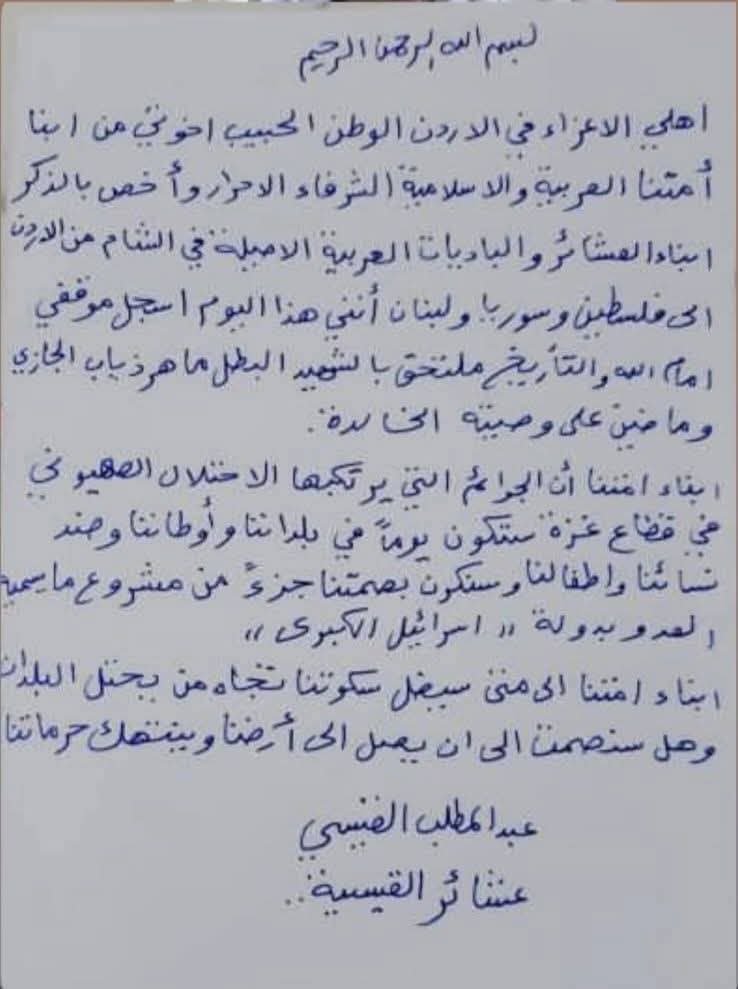 بسم الله الرحمن الرحيم
أهلي الاعزاء في الاردن الوطن الحبيب اخوتي من ابنا
أمتنا العربية والاسلامية الشرفاء الاحرار وأخص بالذكر
ابناء العشائر والباديات العربية الاصيلة في الشام من الاردن
الى فلسطين وسوريا ولبنان أنني هذا اليوم اسجل موقفي
امام الله والتأريخ ملتحق بالشهيد البطل ماهر ذياب الجازي
وماضين على وصيته الخالدة.
ابناء امتنا أن الجرائم التي يرتكبها الاحتلال الصهيوني
في قطاع غزة ستكون يوماً في بلداننا وأوطاننا وضد
نسائنا واطفالنا وسنكون بصمتنا جزءً من مشروع ما يسميه
العدو بدولة "اسرائيل الكبرى"
ابناء امتنا الى متى سيضل سكوتنا تجاه من يحتل البلدان
وهل سنصمت الى ان يصل الى أرضنا وينتهك حرماتنا
عبد المطلب القيسي
عشائر القيسية..